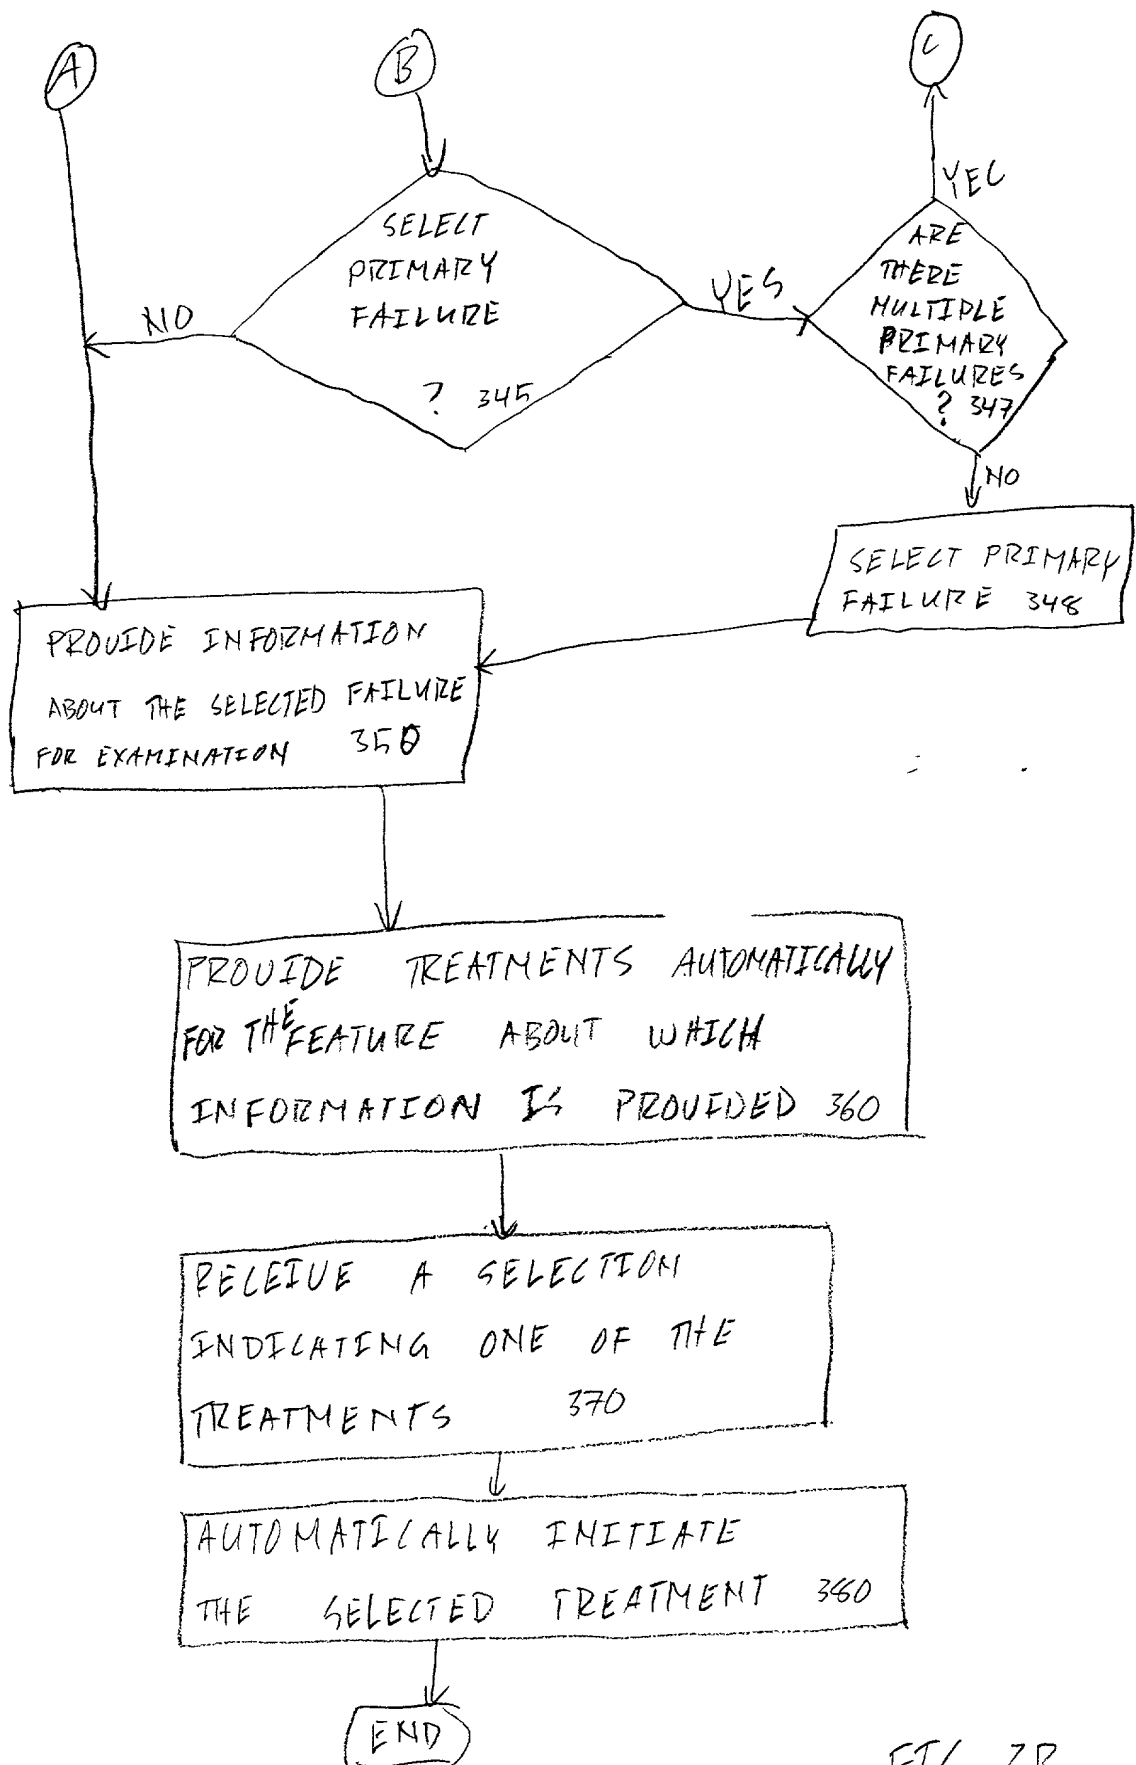 A
B
C
YES
SELECT
PRIMARY
FAILURE
? 345
NO
YES
ARE
THERE
MULTIPLE
PRIMARY
FAILURES
? 347
NO
SELECT PRIMARY
FAILURE 348
PROVIDE INFORMATION
ABOUT THE SELECTED FAILURE
FOR EXAMINATION 350
PROVIDE TREATMENTS AUTOMATICALLY
FOR THE FEATURE ABOUT WHICH
INFORMATION IS PROVIDED 360
RECEIVE A SELECTION
INDICATING ONE OF THE
TREATMENTS 370
AUTOMATICALLY INITIATE
THE SELECTED TREATMENT 380
END